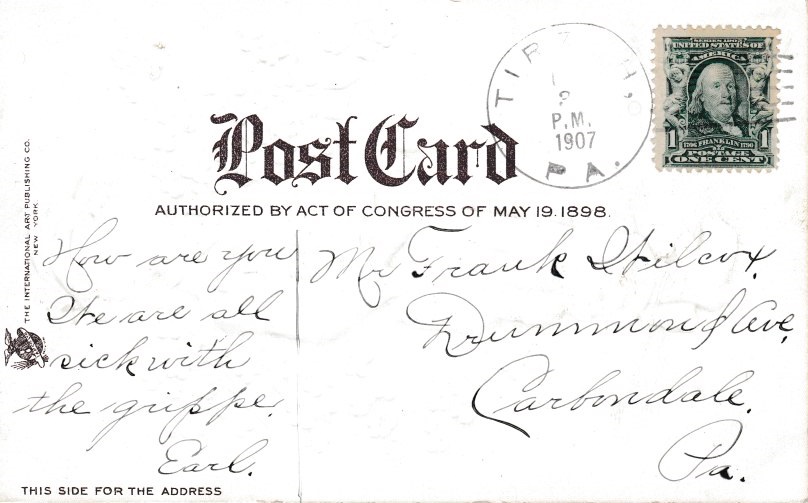 TIRZAH,
P.M.
1907
PA.
SERIES 1902
UNITED STATES OF
AMERICA
1 1
1706 FRANKLIN 1790
POSTAGE
ONE CENT
Post Card
AUTHORIZED BY ACT OF CONGRESS OF MAY 19. 1898.
THE INTERNATIONAL ART PUBLISHING CO.
NEW YORK.
How are you
We are all
sick with
the grippe.
Earl.
Mr Frank Wilcox,
Drummond Ave,
Carbondale,
Pa.
THIS SIDE FOR THE ADDRESS